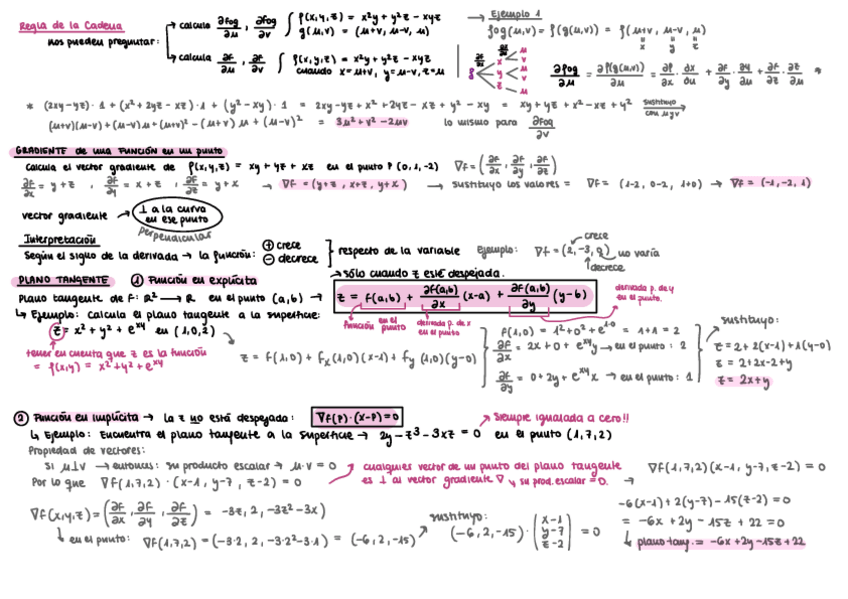 Regla de la Cadena
nos pueden preguntar:
→ calcula ∂fog/∂u , ∂fog/∂v ∫ f(x,y,z) = x²y + y²z - xyz
g(u,v) = (u+v, u-v, u)
→ calcula ∂f/∂u , ∂f/∂v ∫ f(x,y,z) = x²y + y²z - xyz
cuando x=u+v, y=u-v, z=u
→ Ejemplo 1
fog(u,v) = f(g(u,v)) = f(u+v, u-v, u)
x y z
∂fog/∂u = ∂f(g(u,v))/∂u = ∂f/∂x · ∂x/∂u + ∂f/∂y · ∂y/∂u + ∂f/∂z · ∂z/∂u *
* (2xy-yz)·1 + (x²+2yz-xz)·1 + (y²-xy)·1 = 2xy-yz+x²+2yz-xz+y²-xy = xy+yz+x²-xz+y² sustituyo con u y v
(u+v)(u-v)+(u-v)u+(u+v)²-(u+v)u+(u-v)² = 3u²+v²-2uv lo mismo para ∂fog/∂v
GRADIENTE de una FUNCIÓN en un punto
Calcula el vector gradiente de f(x,y,z) = xy + yz + xz en el punto P(0,1,-2) ∇f = (∂f/∂x, ∂f/∂y, ∂f/∂z)
∂f/∂x = y+z , ∂f/∂y = x+z , ∂f/∂z = y+x → ∇f = (y+z, x+z, y+x) → sustituyo los valores = ∇f = (1-2, 0-2, 1+0) → ∇f = (-1,-2,1)
vector gradiente → ⊥ a la curva en ese punto
perpendicular
Interpretación
Según el signo de la derivada → la función: ⊕ crece ⊖ decrece } respecto de la variable Ejemplo: ∇f = (2,-3,0) crece decrece no varía
PLANO TANGENTE ① Función en explícita → sólo cuando z está despejada.
Plano tangente de F: ℝ² → ℝ en el punto (a,b) → z = f(a,b) + ∂f(a,b)/∂x (x-a) + ∂f(a,b)/∂y (y-b)
función en el punto derivada p. de x en el punto derivada p. de y en el punto.
↳ Ejemplo: calcula el plano tangente a la superficie:
z = x² + y² + e^xy en (1,0,2)
tener en cuenta que z es la función
= f(x,y) = x²+y²+e^xy
z = f(1,0) + fx(1,0)(x-1) + fy(1,0)(y-0)
f(1,0) = 1²+0²+e^1·0 = 1+1 = 2
∂f/∂x = 2x+0+e^xy y → en el punto: 2
∂f/∂y = 0+2y+e^xy x → en el punto: 1
sustituyo:
z = 2+2(x-1)+1(y-0)
z = 2+2x-2+y
z = 2x+y
② Función en implícita → la z no está despejada: ∇f(P)·(x-P)=0
→ Siempre igualada a cero!!
↳ Ejemplo: Encuentra el plano tangente a la superficie → 2y-z³-3xz = 0 en el punto (1,7,2)
Propiedad de vectores:
Si u⊥v → entonces: su producto escalar → u·v = 0
Por lo que ∇f(1,7,2)·(x-1, y-7, z-2) = 0
cualquier vector de un punto del plano tangente
es ⊥ al vector gradiente ∇ y su prod. escalar = 0.
→ ∇f(1,7,2)(x-1, y-7, z-2) = 0
∇f(x,y,z) = (∂f/∂x, ∂f/∂y, ∂f/∂z) = -3z, 2, -3z²-3x)
↳ en el punto: ∇f(1,7,2) = (-3·2, 2, -3·2²-3·1) = (-6,2,-15)
sustituyo:
(-6,2,-15)·(x-1 y-7 z-2) = 0
-6(x-1)+2(y-7)-15(z-2)=0
= -6x+2y-15z+22=0
↳ plano tang. = -6x+2y-15z+22